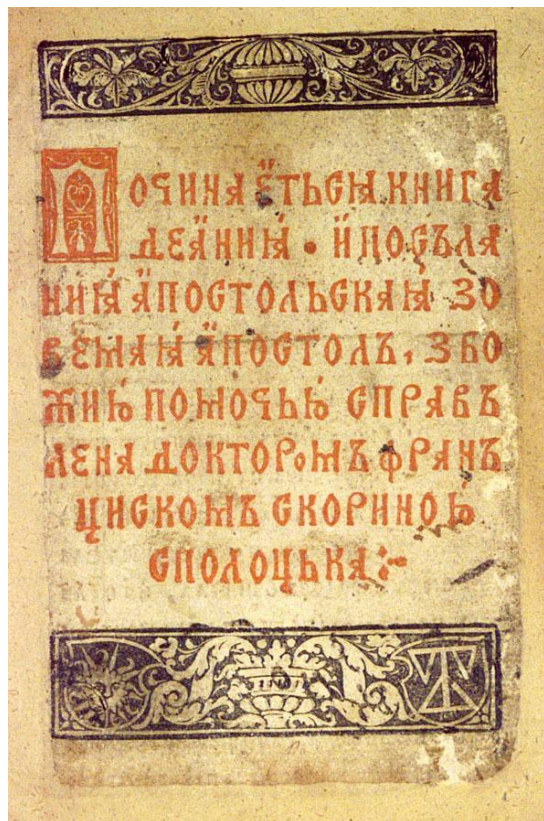 Почина ётьсѧ книга
деӓниꙗ • ӥ посъла
ниꙗ ӓпостольскаꙗ зо
вемаꙗ ӓпостолъ, з бо
жиꙗ помочью справъ
лена докторомъ Франъ
цискомъ скориною
сполоцька :~